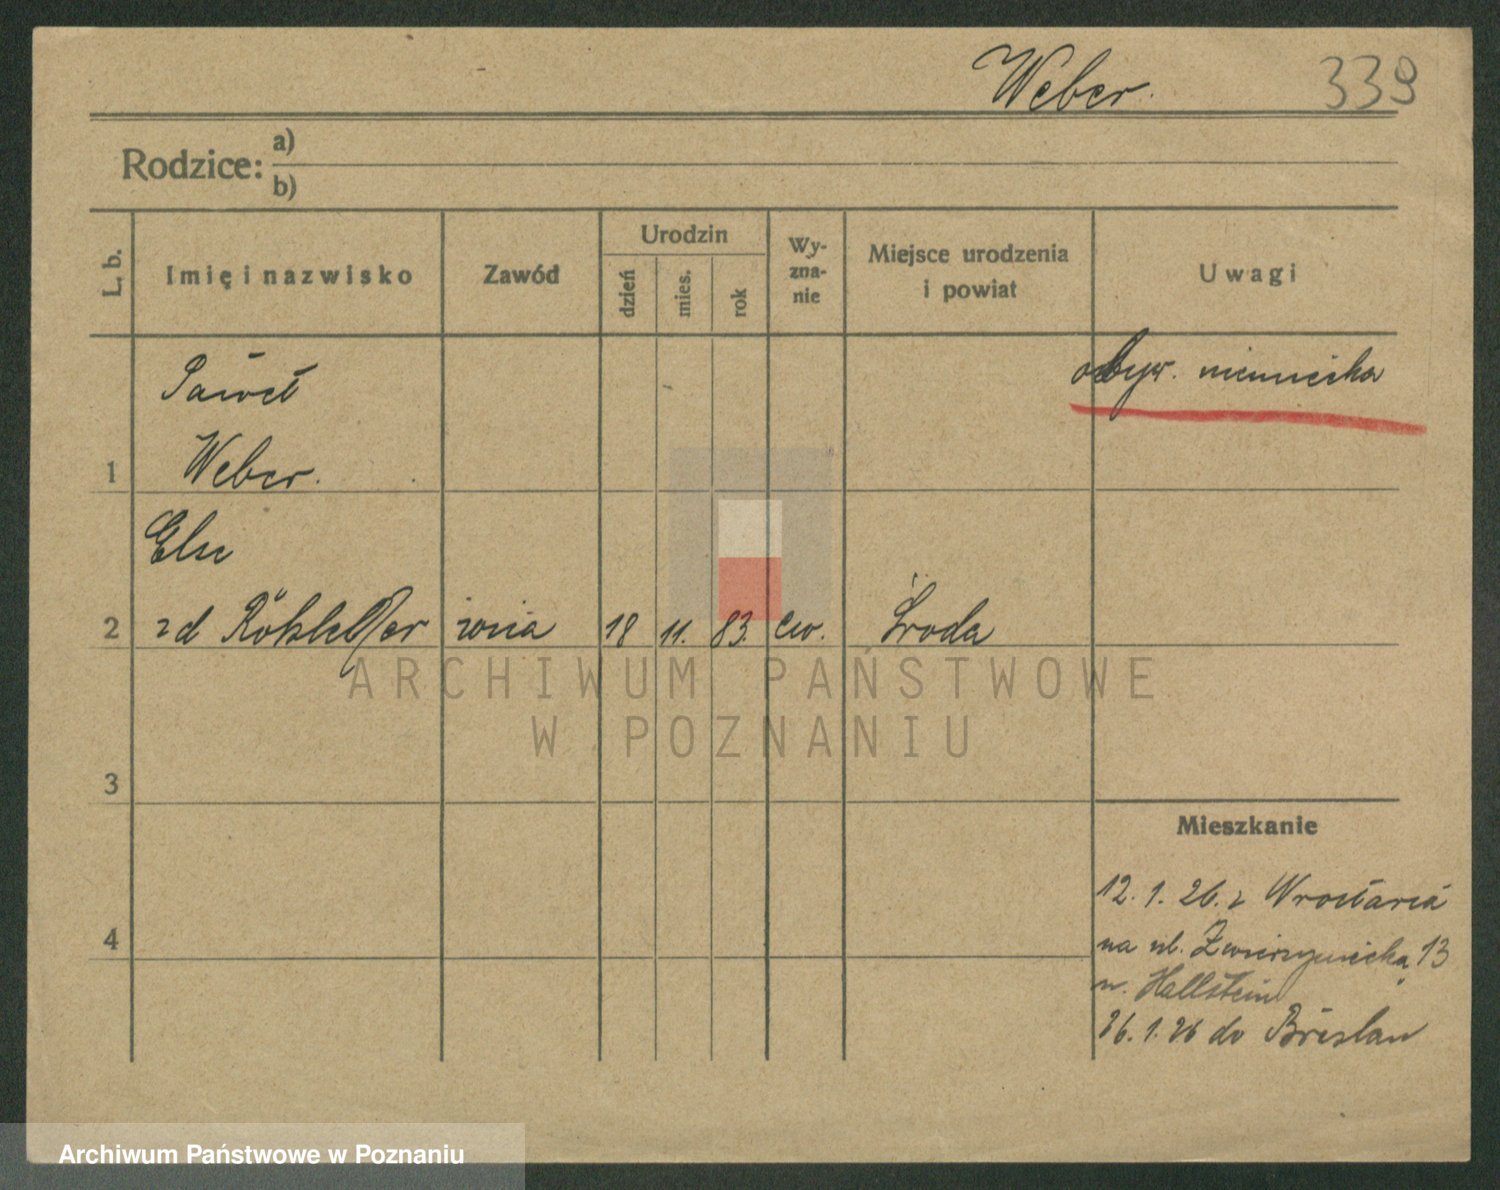 Weber. 339
Rodzice: a)
b)
L. b.
Imię i nazwisko
Zawód
Urodzin
dzień
mies.
rok
Wy-
zna-
nie
Miejsce urodzenia
i powiat
Uwagi
Paweł
obyw. niemiecka
1 Weber.
Else
2 zd żona 18 11. 83. ew. Środa
ARCHIWUM PAŃSTWOWE
W POZNANIU
3
Mieszkanie
12. 1. 26. z Wrocławia
4
na ul. Zwierzyniecka 13
Hallstein
26. 1. 26 do Breslau
Archiwum Państwowe w Poznaniu